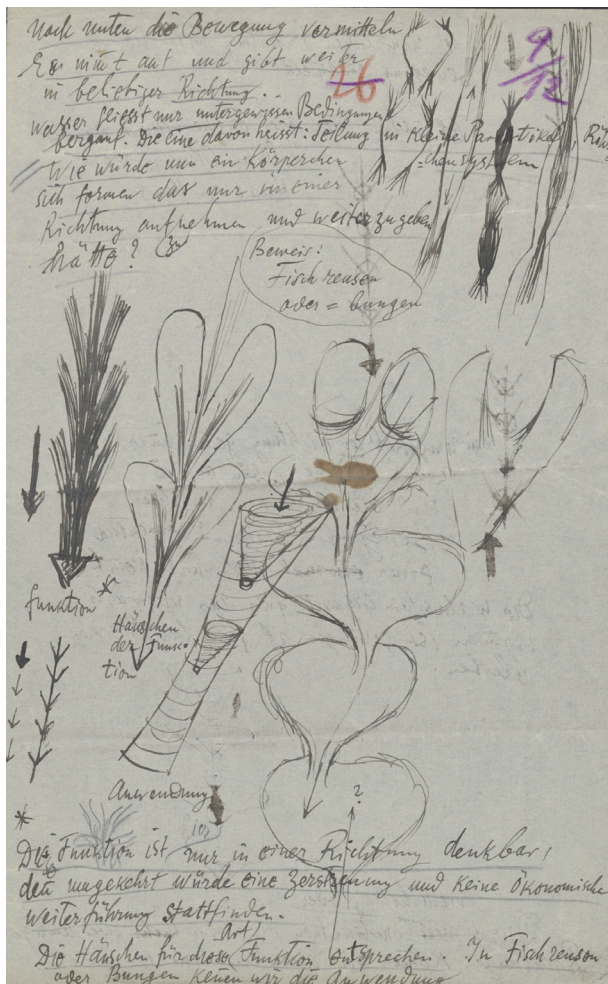 nach unten die Bewegung vermitteln
Es nimt auf und gibt weiter
in beliebiger Richtung.
26
9/12
wasser fliesst nur unter gewissen Bedingungen
bergauf. Die eine davon heisst: Teilung in kleine Partikal Rör
=chensystem
Wie würde nun ein Körperchen
sich formen das nur in einer
Richtung aufnehmen und weiterzugeben
hätte?
Beweis:
Fischreusen
oder = bungen
funktion *
Häuschen
der Funk=
tion
Anwendung
?
*
Die Funktion ist nur in einer Richtung denkbar,
den umgekehrt würde eine Zerstreuung und keine Ökonomische
weiterführung stattfinden.
Die Häuschen für diese Art Funktion entsprechen. In Fischreusen
oder Bungen kenen wir die Anwendung